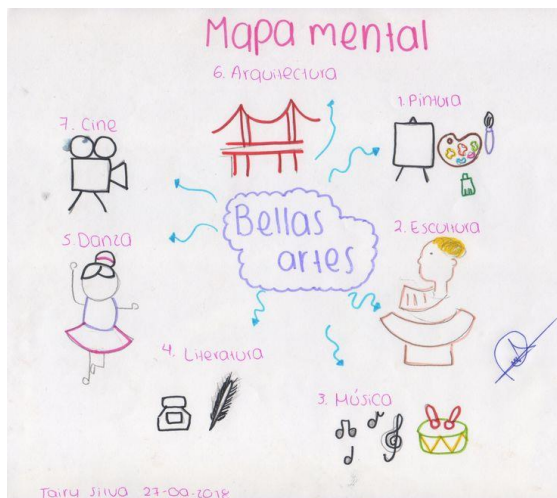 Mapa mental
6. Arquitectura
7. Cine
1. Pintura
Bellas
artes
5. Danza
2. Escultura
4. Literatura
3. Música
Silva